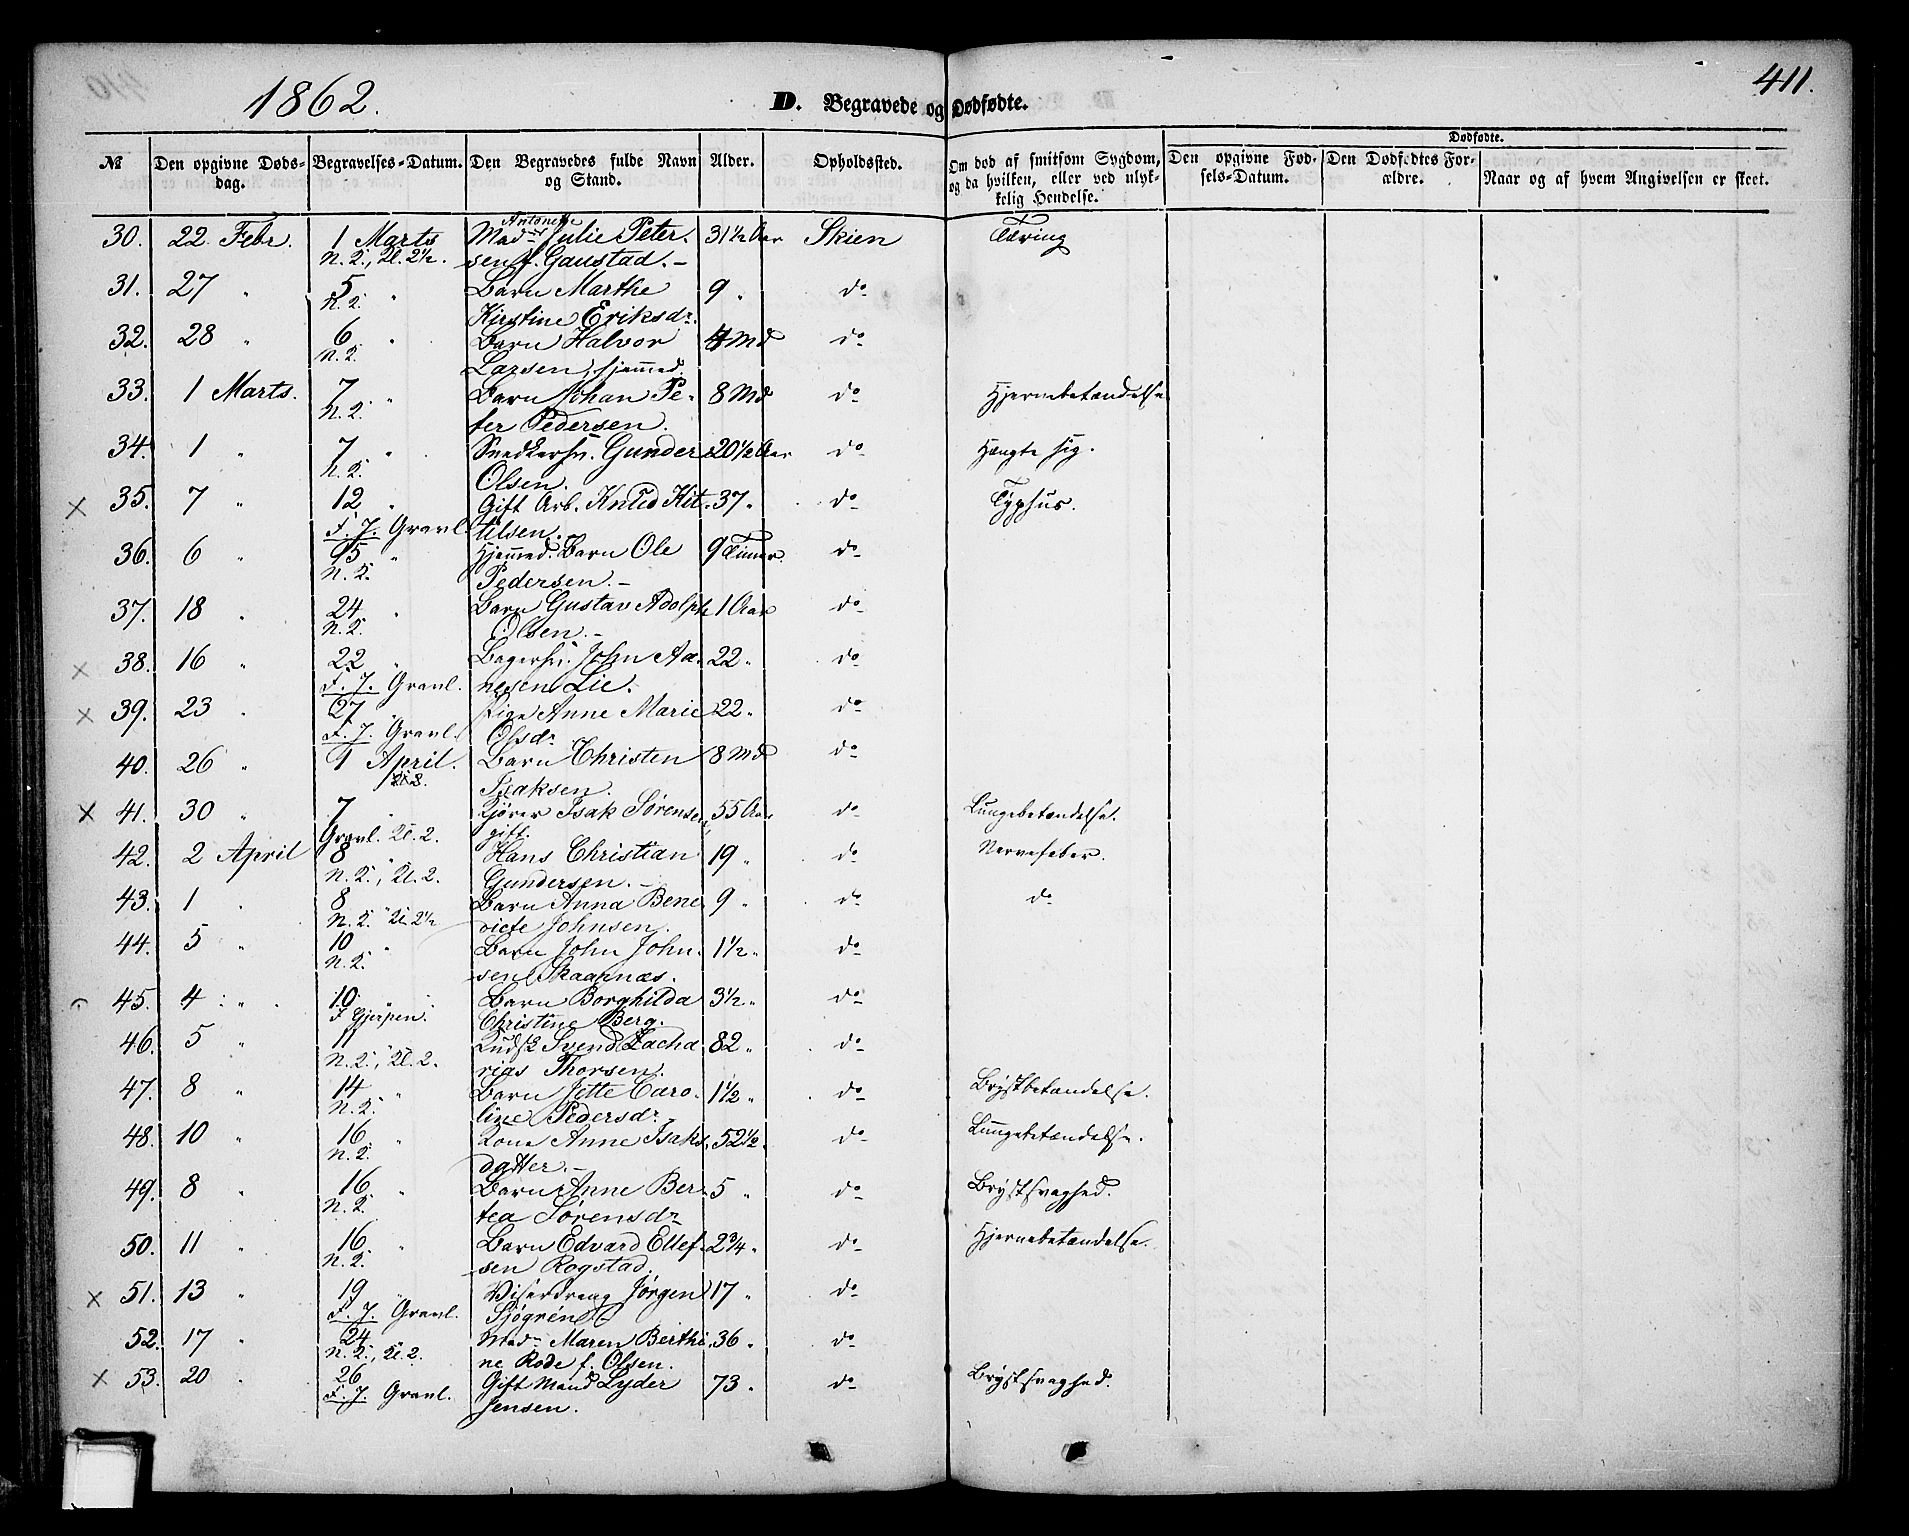 1862.
D. Begravede og Dødfødte.
411.
№ Den opgivne Døds-dag. Begravelses-Datum. Den Begravedes fulde Navn og Stand. Alder. Opholdssted. Om død af smitsom Sygdom, og da hvilken, eller ved ulyk-kelig Hendelse. Dødfødte. Den opgivne Fød-sels-Datum. Den Dødfødtes For-ældre. Naar og af hvem Angivelsen er skeet.
30. 22 Febr. 1 Marts Mad. Antonette Julie Peter- 31½ Aar Skien Tæring
N.K., Kl. 2½. sen f. Gaustad.-
31. 27 " 5 " Barn Marthe 9 " do
N.K. Kirstine Eriksdr.
32. 28 " 6 " Barn Halvor 4 Md do
N.K. Larsen, hjemmed.
33. 1 Marts. 7 " Barn Johan Pe- 8 Md do Hjernebetændelse
N.K. ter Pedersen.
34. 1 " 7 " Snedkersv. Gunder 20½ Aar do Hængte sig.
N.K. Olsen.
X 35. 7 " 12 " Gift Arb. Knud Kit- 37 " do Typhus.
F. J. Gravl. tilsen.
36. 6 " 15 " Hjemmed. Barn Ole 9 Timer. do
N.K. Pedersen.-
37. 18 " 24 " Barn Gustav Adolph 1 Aar do
N.K. Olsen.-
X 38. 16 " 22 " Bagersv. John Aa- 22 " do
F. J. Gravl. nesen Lie.
X 39. 23 " 27 " Pige Anne Marie 22 " do
F. J. Gravl. Olsdr.
40. 26 " 1 April. Barn Christen 8 Md do
Isaksen.
X 41. 30 " 7 " Kjører Isak Sørensen, 55 Aar do Lungebetændelse.
Gravl. Kl. 2. gift.
42. 2 April 8 " Hans Christian 19 " do Nervefeber.
N.K., Kl. 2. Gundersen.-
43. 1 " 8 " Barn Anna Bene- 9 " do do
N.K. Kl. 2½ dicte Johnsen.
44. 5 " 10 " Barn John John- 1½ " do
N.K. sen Skaarnæs.
45. 4 " 10 " Barn Borghilda 3½ " do
I Gjerpen. Christine Berg.
46. 5 " 11 " Svend Zacha- 82 " do
N.K., Kl. 2. rias Thorsen.
47. 8 " 14 " Barn Jette Caro- 1½ " do Brystbetændelse.
N.K. line Pedersdr.
48. 10 " 16 " Kone Anne Isaks- 52½ " do Lungebetændelse.
N.K. datter.-
49. 8 " 16 " Barn Anne Ber- 5 " do Brystsvaghed.
N.K. tea Sørensdr.
50. 11 " 16 " Barn Edvard Ellef- 2¾ " do Hjernebetændelse.
N.K. sen Rogstad.
X 51. 13 " 19 " Viserdreng Jørgen 17 " do
F. J. Gravl. Sjøgrén.
52. 17 " 24 " Mad. Maren Berthi- 36 " do
N.K., Kl. 2. ne Rode f. Olsen.
X 53. 20 " 26 " Gift Mand Lyder 73 " do Brystsvaghed.
F. J. Gravl. Jensen.